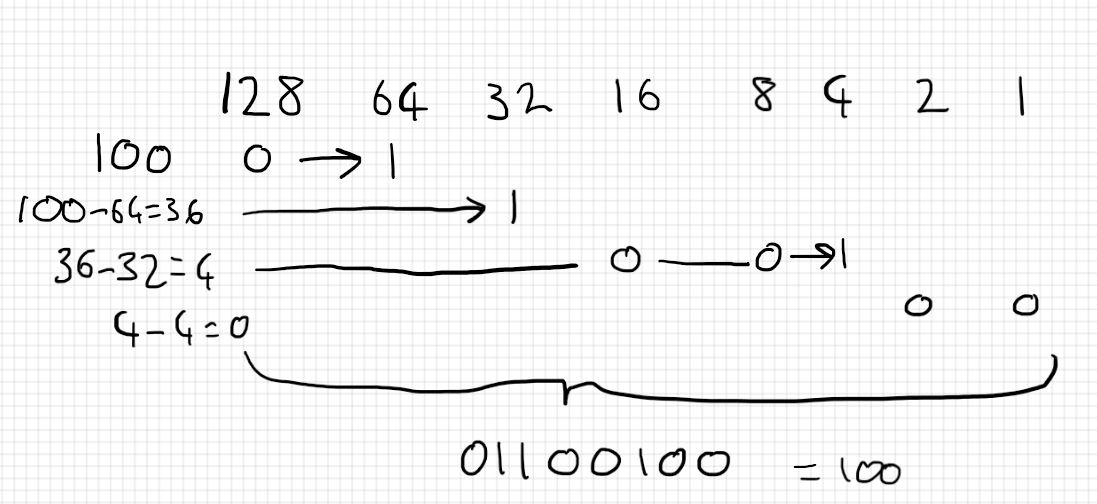 128 64 32 16 8 4 2 1
100 0 → 1
100-64=36 → 1
36-32=4 0 0 → 1
0 0
4-4=0
01100100 = 100